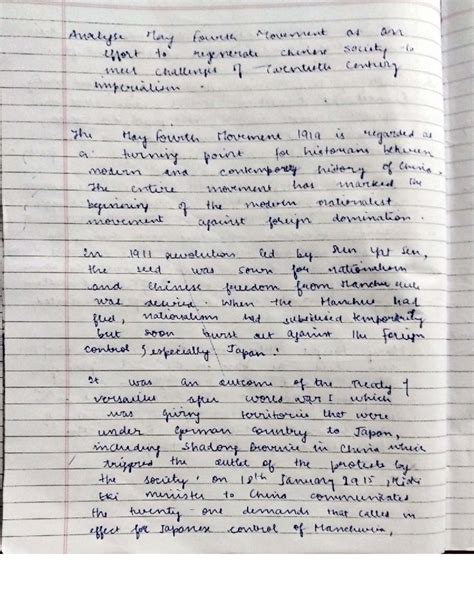 Analyse May Fourth Movement as an
effort to regenerate chinese society to
meet challenges of Twentieth Century
imperialism.
The May Fourth Movement 1919 is regarded as
a turning point for historians between
modern and contemporary history of China.
The entire movement has marked the
beginning of the modern nationalist
movement against foreign domination.
In 1911 revolution led by Sun Yat Sen,
the seed was sown for nationalism
and Chinese freedom from Manchu rule
was desired. When the Manchus had
fled, nationalism had subsidised temporarily
but soon burst out against the foreign
control, especially Japan.
It was an outcome of the Treaty of
Versailles after World War I which
was giving territories that were
under German country to Japan,
including Shadong Province in China which
triggered the outlet of the protests by
the society. On 18th January 1915,
Eki minister to China communicated
the twenty-one demands that called in
effect for Japanese control of Manchuria,